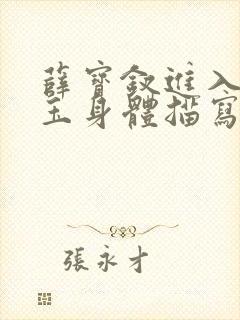 薛寶釵進入
玉身體描寫
張永才